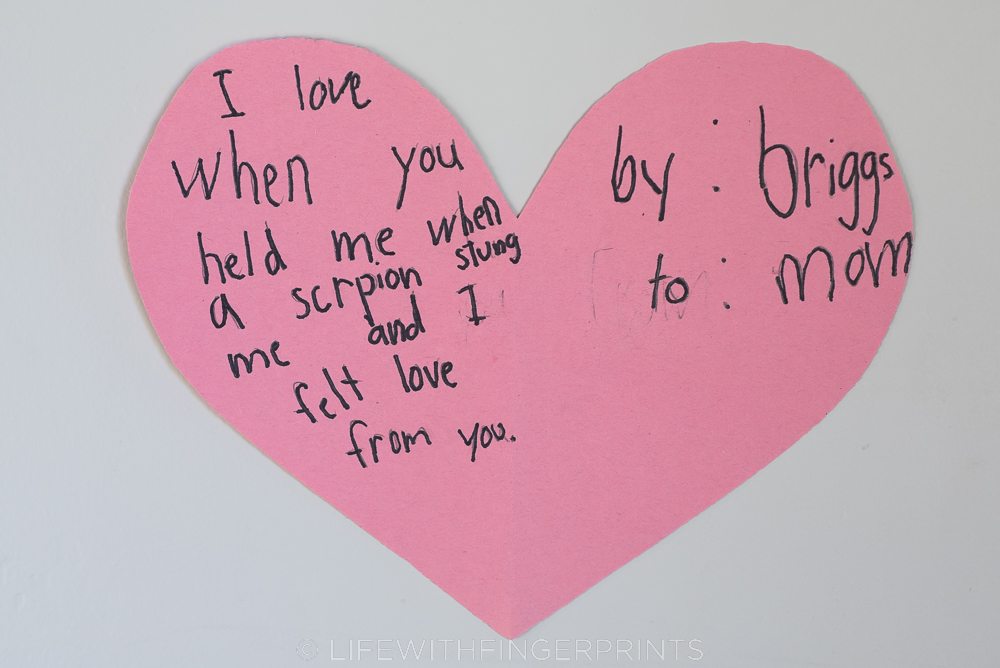 I love
when you
held me when
a scrpion stung
me and I
felt love
from you.
by: briggs
to: mom
© LIFEWITHFINGERPRINTS